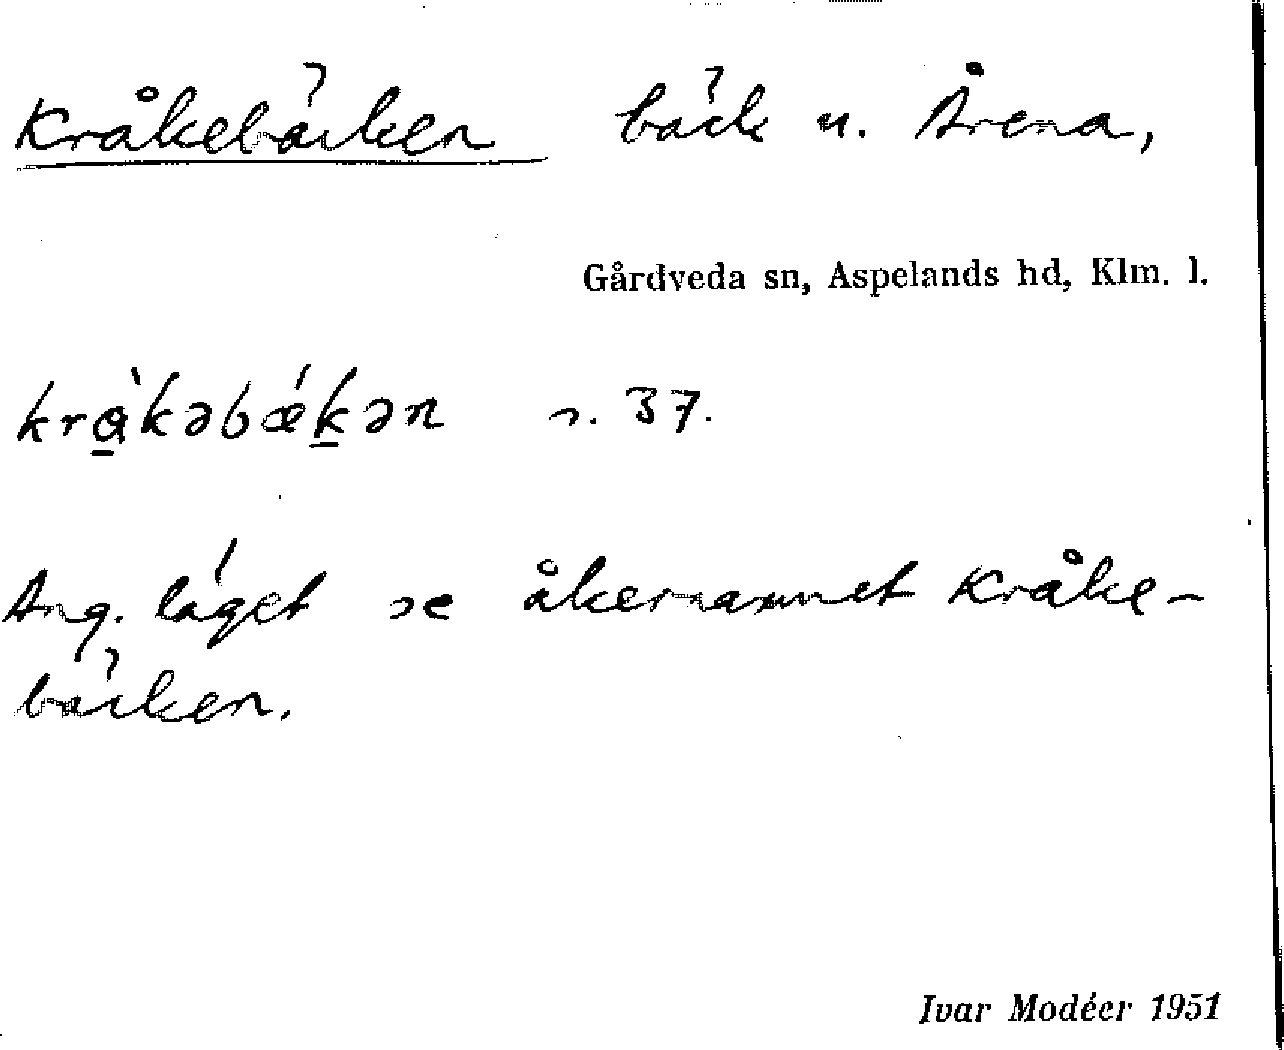 Kråkebäcken bäck u. Årena,
Gårdveda sn, Aspelands hd, Klm. l.
krà̱kəbǽḵən s. 37.
Ang. läget se åkernamnet Kråke-
bäcken.
Ivar Modéer 1951